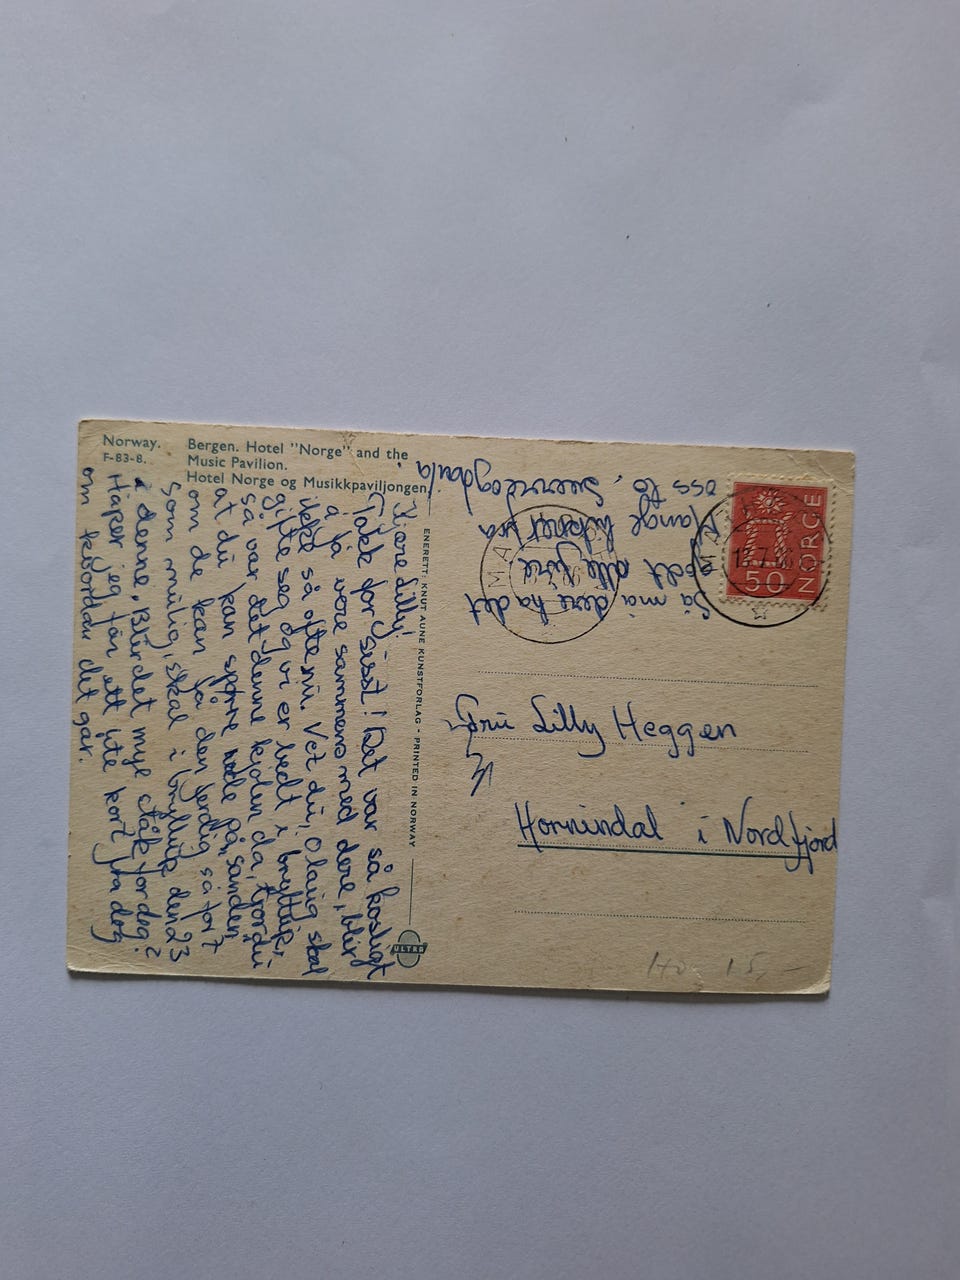 Norway.
F-83-8.
Bergen. Hotel "Norge" and the
Music Pavilion.
Hotel Norge og Musikkpaviljongen.
Kjære Lilly!
Takk for sisst! Det var så koslight
å få vere sammens med dere, blir
ikke så ofte nu. Vet du, Olaug skal
gifte seg og vi er bedt i brylluk,
så var det denne kjolen da, tror du
at du kan spørre nede på sanden,
om de kan få den ferdig så fort
som mulig, skal i brylluk den 23
i denne. Blir det mye ståk for deg?
Håper jeg får ett lite kort fra deg
om kvordan det går.
Så må dere ha det
godt alle
Mange fra
oss to.
ENERETT: KNUT AUNE KUNSTFORLAG - PRINTED IN NORWAY
ULTRA
NORGE
50
Fru Lilly Heggen
Hornindal i Nordfjord
15,-